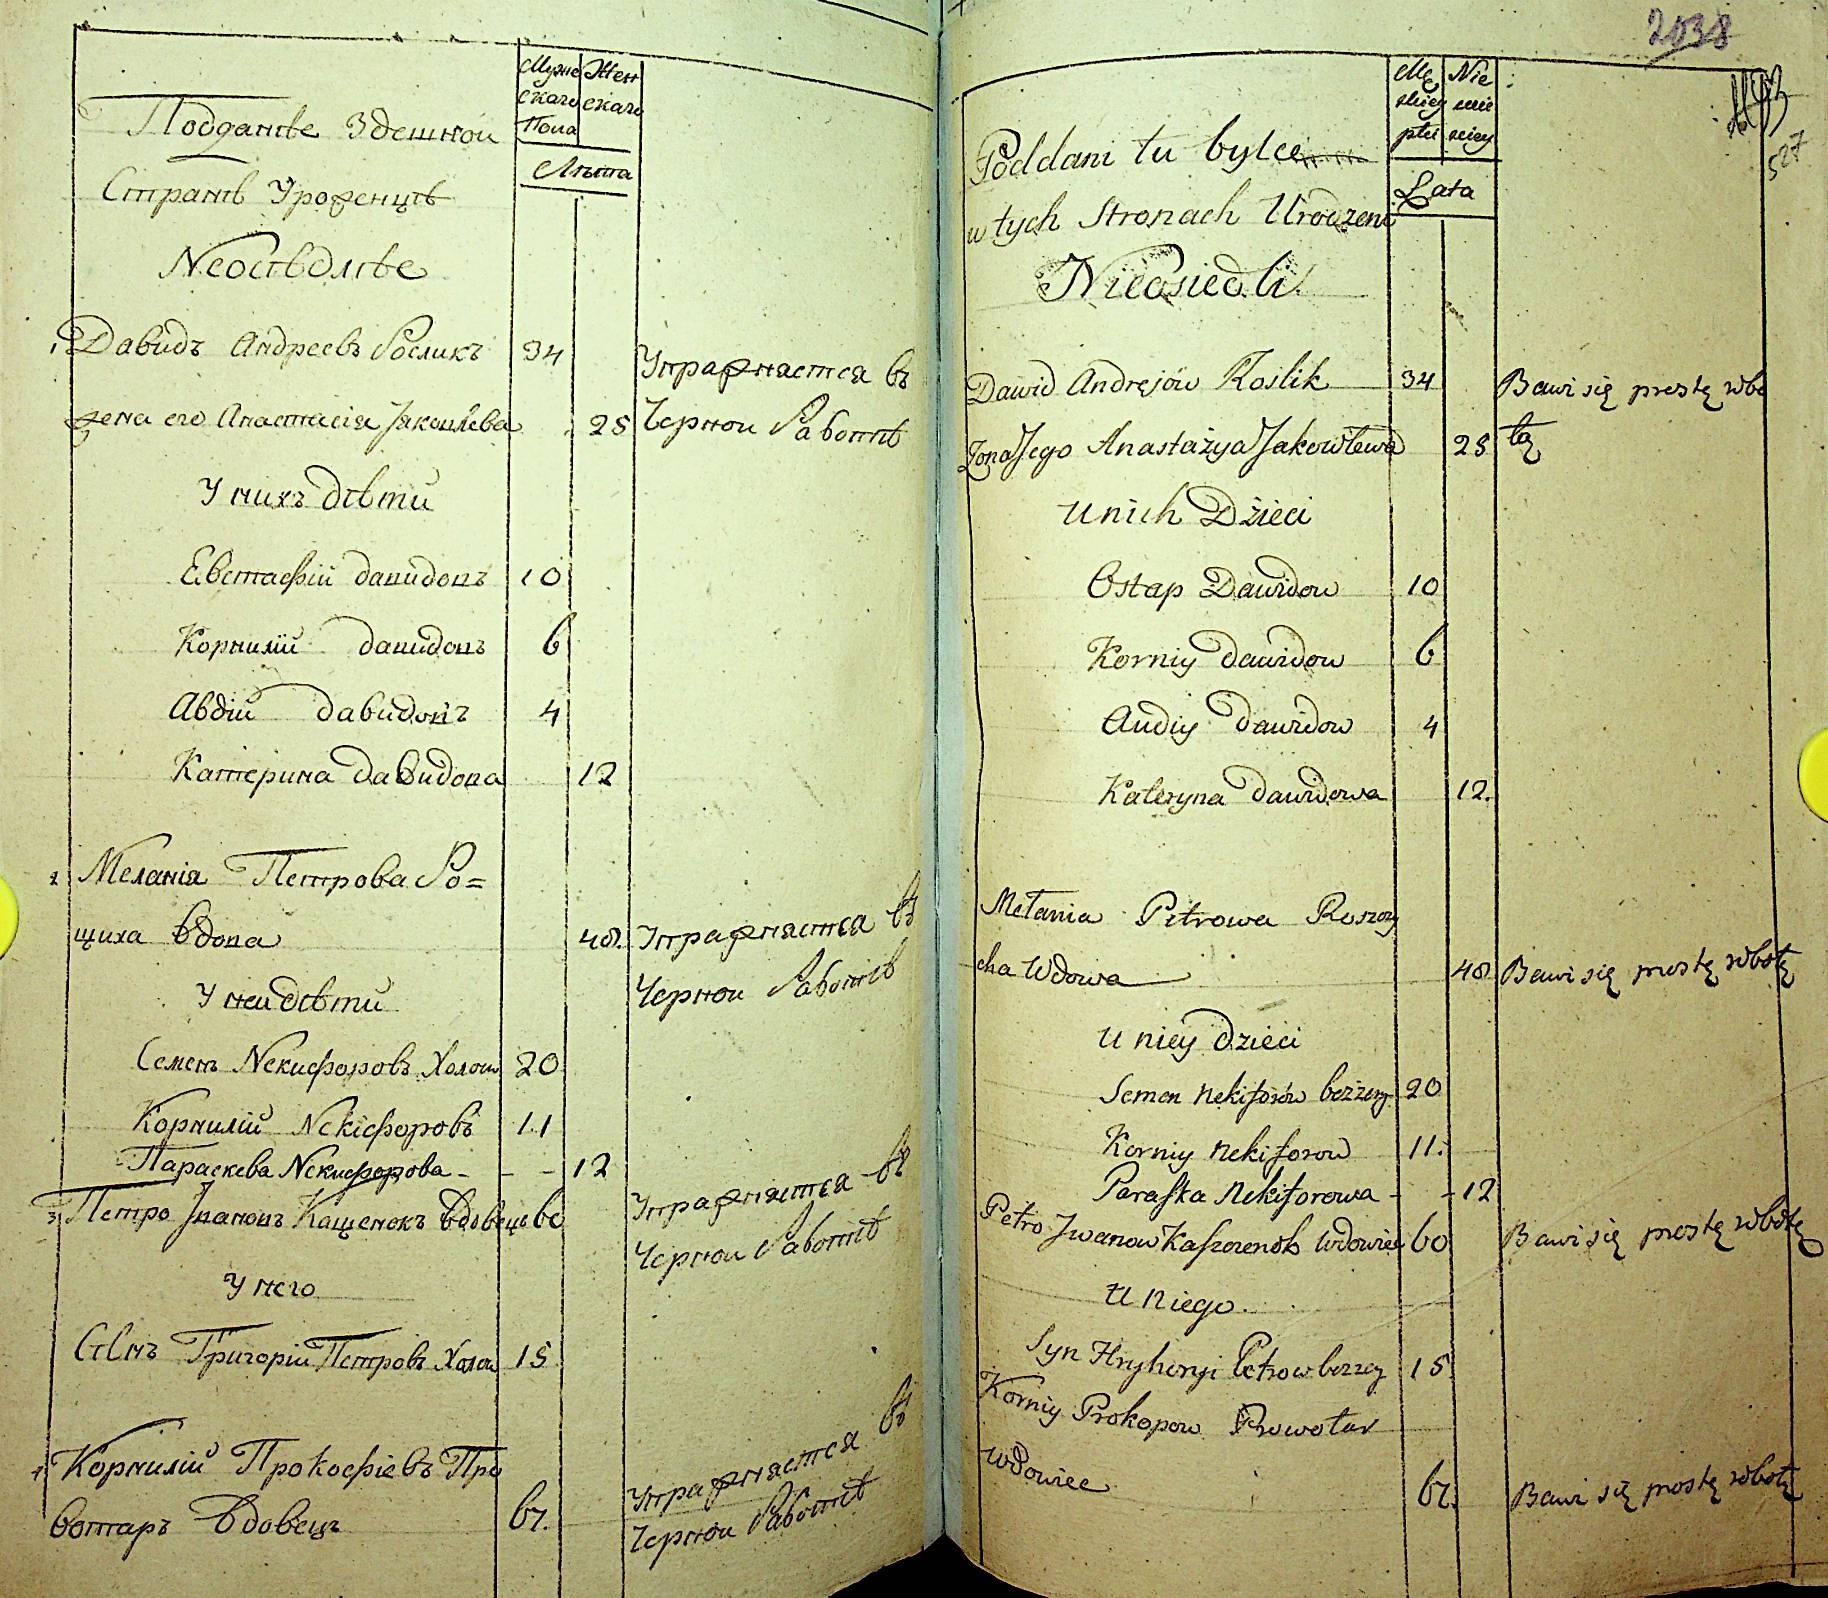 Муже Жен
скаго скаго
Пола
Лѣта
Подданіе Здешной
Странѣ Уроженцѣ
Неосѣдлѣе
1 Давидъ Андреевъ Росликъ 34 Упражняется въ
жена его Анастасія Яковлева 25 Черной Работѣ
У нихъ дѣти
Евстафій давидовъ 10
Корнилій давидовъ 6
Авдій давидовъ 4
Катерина давидова 12
2 Меланія Петрова Ро=
щиха вдова 48. Упражняется въ
У ней дѣти Черной Работѣ
Семенъ Некифоровъ Холос 20
Корнилій Некіфоровъ 11
Параскева Некифорова - - - 12
3 Петро Ивановъ Кащенокъ вдовецъ 60 Упражняется въ
Черной Работѣ
У него
Сынъ Григорій Петровъ Холос 15
4 Корнилій Прокофіевъ Про
вотаръ вдовецъ 67. Упражняется въ
Черной Работѣ
2038
527
Mę Nie
skiey wie
płci sciey
Lata
Poddani tu bylce
w tych Stronach Urodzeni
Nieosiedli
Dawid Andrejów Roslik 34 Bawi się prostę robo
Żona Jego Anastazya Jakowlewa 25 tą
U nich Dzieci
Ostap Dawidow 10
Korniy dawidow 6
Audiy dawidow 4
Kateryna dawidowa 12.
Mełania Petrowa Roszczy
cha Wdowa 48 Bawi się prostę robotę
U niey dzieci
Semen Nekiforów bezżeny 20
Korniy Nekiforow 11.
Paraska Nekiforowa - - 12
Petro Jwanow Kaszczenok Wdowiec 60 Bawi się prostę robotę
U niego.
Syn Hryhoryi Petrow bezzey 15
Korniy Prokopow Prowotar
Wdowiec 67. Bawi się prostę robotę